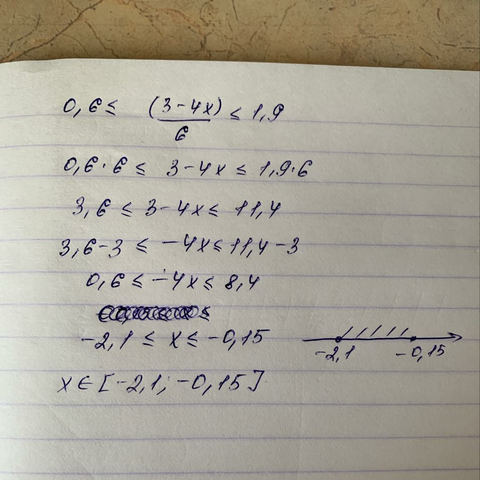 0,6 ≤ (3-4x)/6 ≤ 1,9
0,6·6 ≤ 3-4x ≤ 1,9·6
3,6 ≤ 3-4x ≤ 11,4
3,6-3 ≤ -4x ≤ 11,4-3
0,6 ≤ -4x ≤ 8,4
-2,1 ≤ x ≤ -0,15
-2,1 -0,15
x ∈ [-2,1; -0,15]